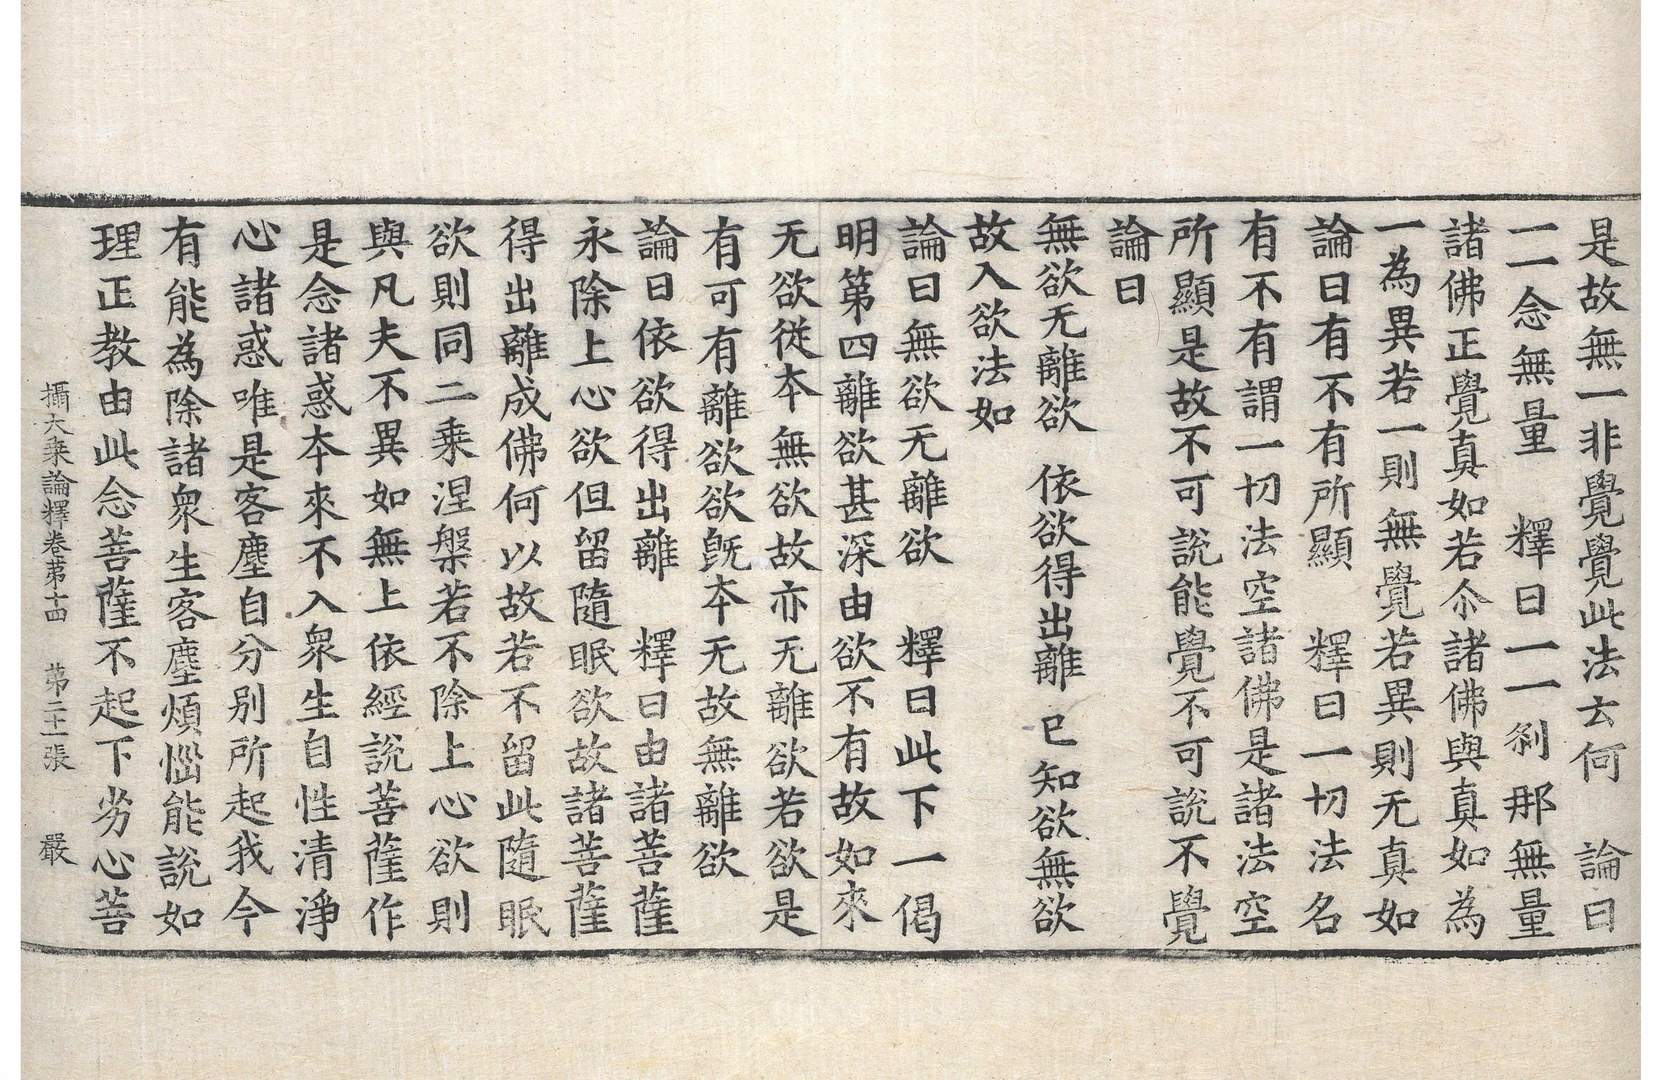 是故無一非覺覺此法云何　論曰
一一念無量　釋曰一一剎那無量
諸佛正覺真如若尒諸佛與真如為
一為異若一則無覺若異則无真如
論曰有不有所顯　釋曰一切法名
有不有謂一切法空諸佛是諸法空
所顯是故不可說能覺不可說不覺
論曰
無欲无離欲　依欲得出離　已知欲無欲
故入欲法如
論曰無欲无離欲　釋曰此下一偈
明第四離欲甚深由欲不有故如來
无欲從本無欲故亦无離欲若欲是
有可有離欲欲旣本无故無離欲
論曰依欲得出離　釋曰由諸菩薩
永除上心欲但留隨眠欲故諸菩薩
得出離成佛何以故若不留此隨眠
欲則同二乗涅槃若不除上心欲則
與凡夫不異如無上依經說菩薩作
是念諸惑本來不入衆生自性清淨
心諸惑唯是客塵自分別所起我今
有能為除諸衆生客塵煩惱能說如
理正教由此念菩薩不起下劣心菩
攝大乗論釋卷苐十四　苐二十一張　嚴